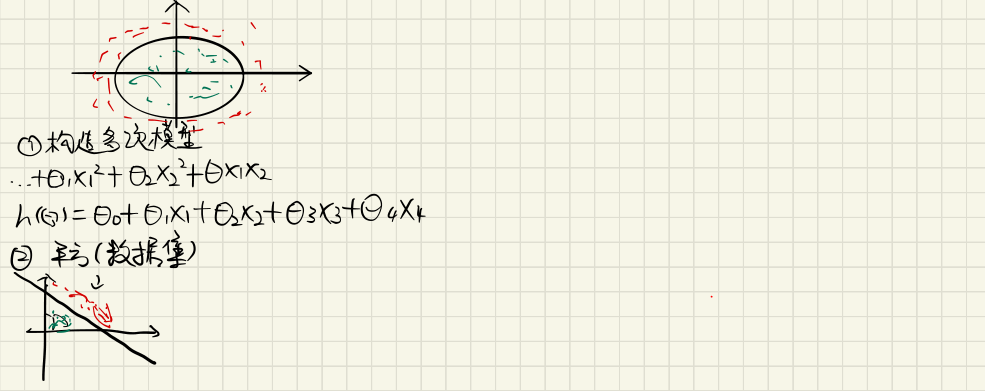 ① 构造多次模型
...+θ₁x₁²+θ₂x₂²+θx₁x₂
h(θ)=θ₀+θ₁x₁+θ₂x₂+θ₃x₃+θ₄x₄
② 平方(数据集)